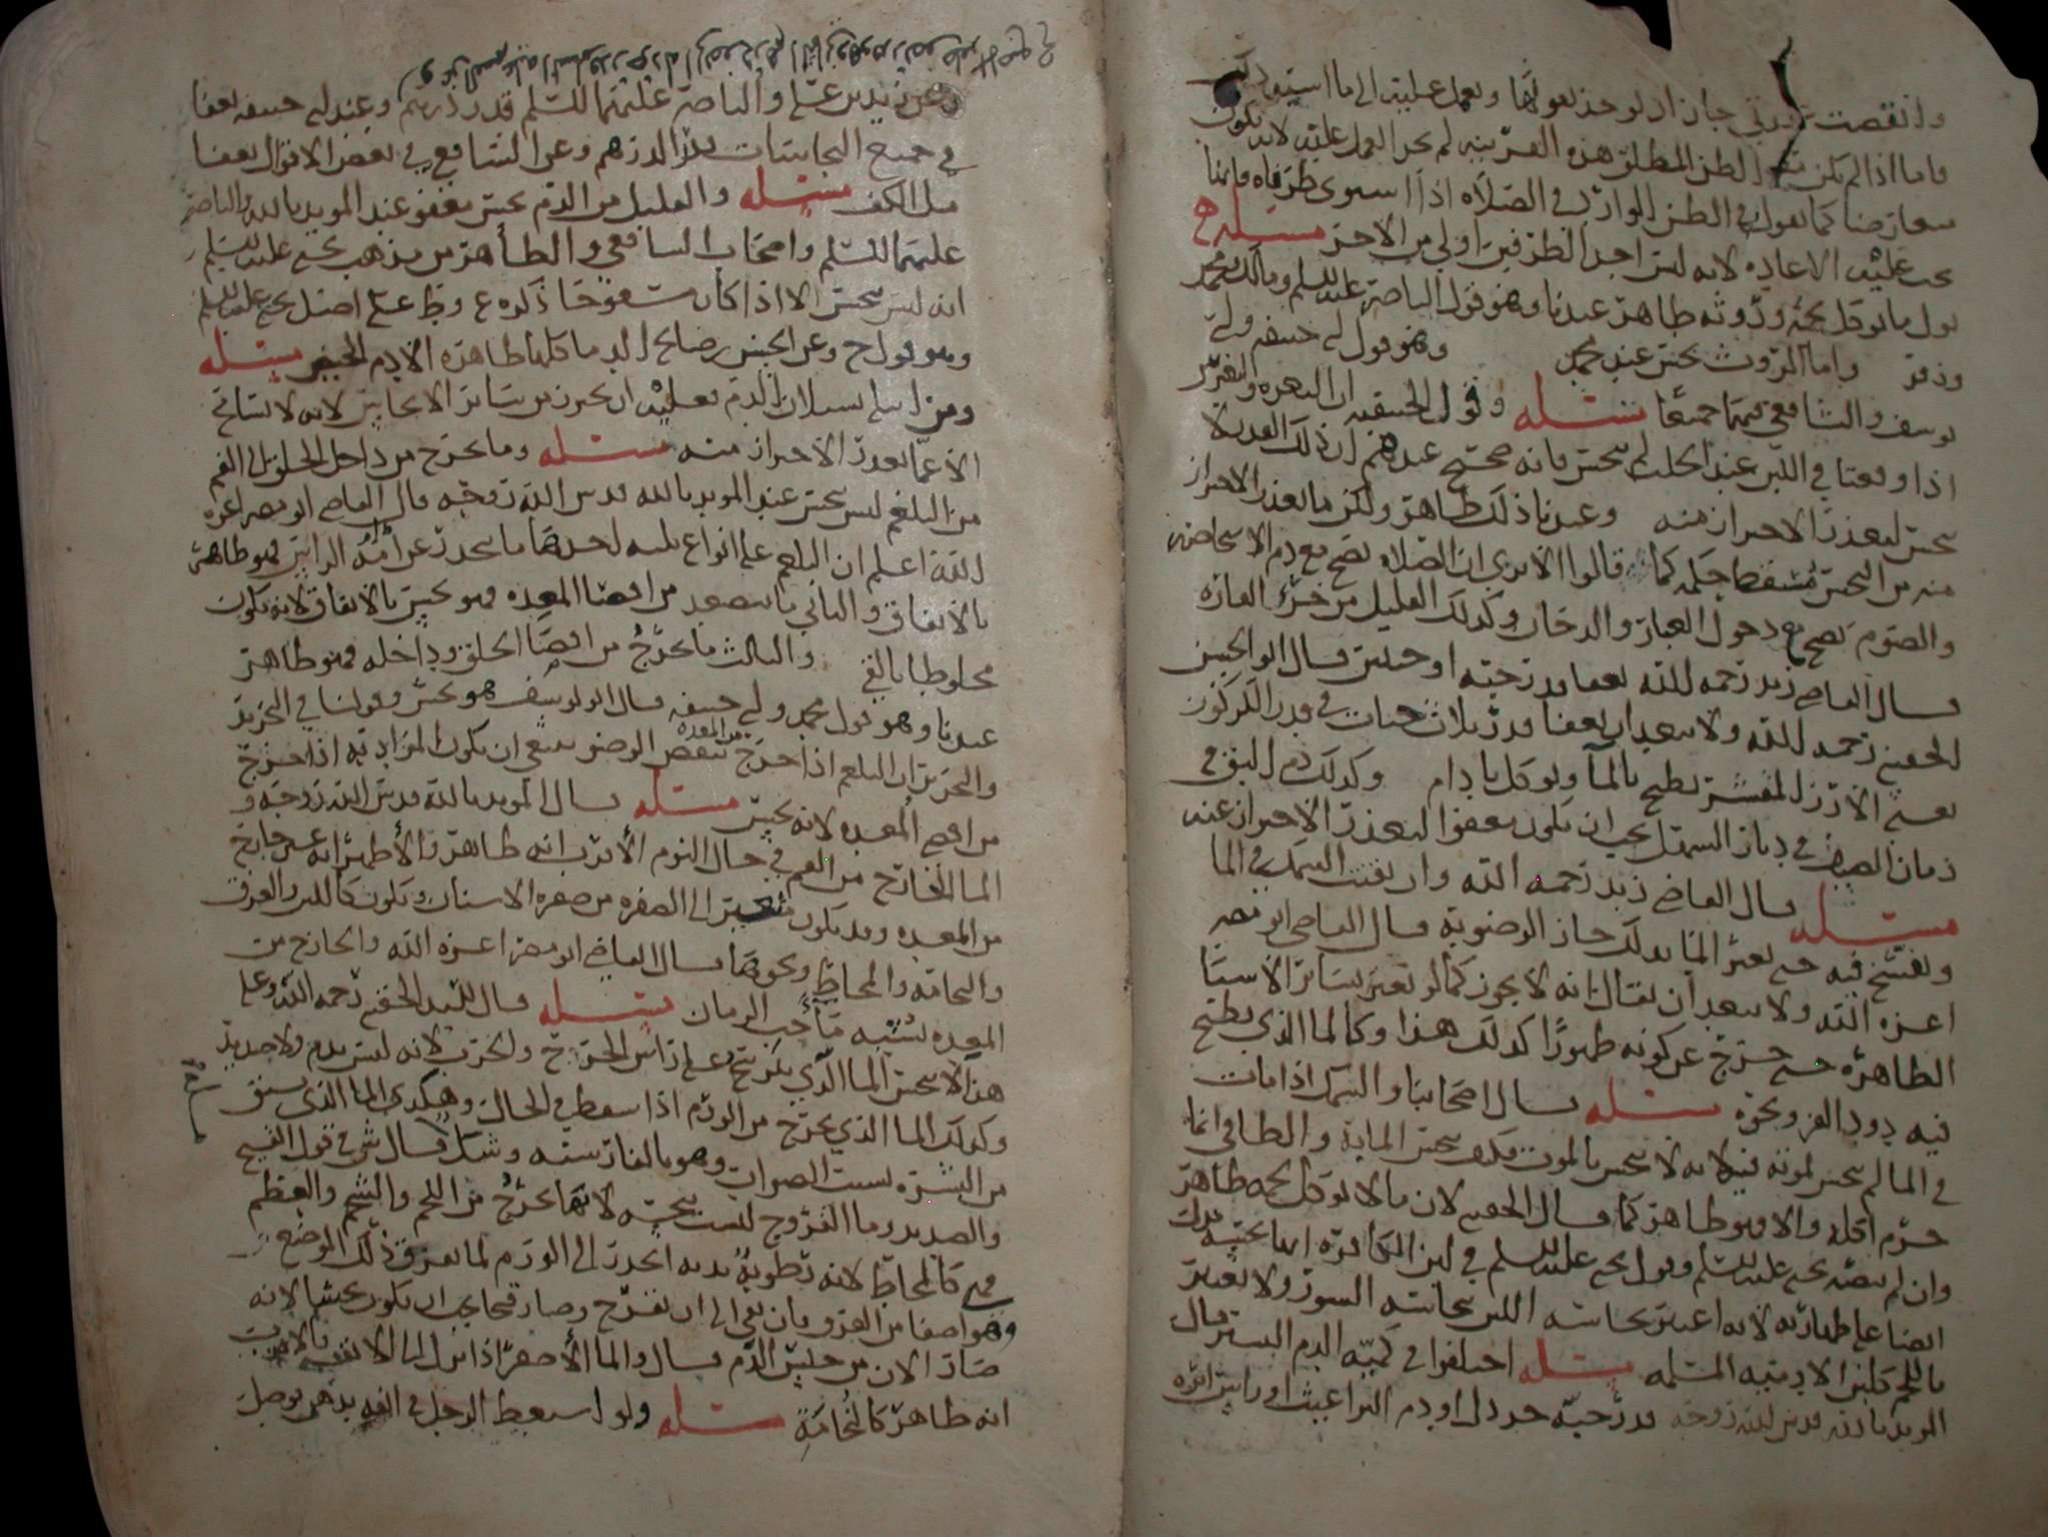 وانقصت جاز ان يوخذ بقولها ويعمل عليه الى ما استوت
واما اذا لم يكن الظن المطلق هذه القرينه لم يجز العمل عليه لانه يكون
متعارضا كما نقول في الظن الوارد في الصلاه اذا استوى طرفاه فانما
يجب عليه الاعاده لانه ليس احد الطرفين اولى من الاخر مسئله
بول ما يوكل لحمه وروثه طاهر عندنا وهو قول الناصر عليه السلم ومالك ومحمد
وزفر واما الروث نجس عند محمد وهو قول ابي حنيفه وابي
يوسف والشافعي فيهما جميعا مسئله وقول الحنيفيه ان البعره والبعرتين
اذا وقعتا في اللبن عند الحلب لم ينجس فانه صحيح عندهم ان ذلك القدر لا
ينجس لتعذر الاحتراز منه وعندنا ذلك طاهر ولكن ما تعذر الاحتراز
منه من النجس فسقط حكمه كما قالوا الا ترى ان الصلاه تصح مع دم الاستحاضه
والصوم يصح مع دخول الغبار والدخان وكذلك القليل من خرء الفاره
قال القاضي زيد رحمه الله يعفا قدر حبته او حبتين قال ابو الحسين
الحقيني رحمه الله ولا يبعد ان يعفا قدر ثلاث حبات في قدر الكركون
يعني الارز المقشر يطبخ بالما ويوكل بادام وكذلك دم البق في
زمان الصيف في ديار السهل يجب ان يكون معفوا لتعذر الاحتراز عنه
مسئله قال القاضي زيد رحمه الله وان تفتت السمك في الما
وتفسخ فيه حتى تغير الما بذلك جاز الوضو به قال القاضي ابو مضر
اعزه الله ولا يبعد ان يقال انه لا يجوز كما لو تغير بسائر الاشيا
الطاهره حتى خرج عن كونه طهورا كذلك هذا وكالما الذي يطبخ
فيه دود القز ونحوه مسئله قال اصحابنا والسمك اذا مات
في الما لم ينجس لموته فيه لانه لا ينجس بالموت فكيف ينجس الماية والطافي انما
حرم اكله والا فهو طاهر كما قال الحقيني لان ما لا يوكل لحمه طاهر
وان لم يصر يحيى عليه السلم وقول يحيى عليه السلم في لبن الكافره انها نجسه يدل
ايضا على طهارته لانه اعتبر نجاسه اللبن بنجاسه السور ولا يعتبر
باللحم كلبن الادميه المسلمه مسئله اختلفوا في كميه الدم اليسير قال
المويد بالله قدس الله روحه قدر حبه خردل او دم البراغيث او راس ابره
وعن زيد بن علي والناصر عليهما السلم قدر درهم وعند ابي حنيفه يعفا
في جميع النجاسات قدر الدرهم وعن الشافعي في بعض الاقوال يعفا
مثل الكف مسئله والقليل من الدم نجس معفو عند المويد بالله والناصر
عليهما السلم واصحاب الشافعي والظاهر من مذهب يحيى عليه السلم
انه ليس بنجس الا اذا كان مسفوحا ذكره ع وط على اصل يحيى عليه السلم
وهو قول ح وعن الحسن بن صالح الدما كلها طاهره الا دم الحيض مسئله
ومن ابتلي بسيلان الدم فعليه ان يحترز من سائر الانجاس لانه لا يسامح
الا عما تعذر الاحتراز منه مسئله وما يخرج من داخل الحلق الى الفم
من البلغم ليس بنجس عند المويد بالله قدس الله روحه قال القاضي ابو مضر اعزه
الله اعلم ان البلغم على انواع ثلثه احدها ما ينحدر عن ام الراس فهو طاهر
بالاتفاق والثاني ما يتصعد من اقصا المعده فهو نجس بالاتفاق لانه يكون
مخلوطا بالقي والثالث ما يخرج من اقصا الحلق وداخله فهو طاهر
عندنا وهو قول محمد وابي حنيفه قال ابو يوسف هو نجس وقولنا في التحرير
والتحرير ان البلغم اذا خرج من المعده نقض الوضو ينبغي ان يكون المراد به اذا خرج
من اقصى المعده لانه نجس مسئله قال المويد بالله قدس الله روحه و
الما الخارج من الفم في حال النوم الاقرب انه طاهر والاظهر انه غير خارج
من المعده وقد يكون متغيرا الى الصفره من صفره الاسنان ويكون كاللبن والعرق
والنخامه والمخاط ونحوها قال القاضي ابو مضر اعزه الله والخارج من
المعده يشبه ما حب الرمان مسئله قال السيد الحقيني رحمه الله وعلى
هذا لا ينجس الما الذي يترشح على راس الجرح والجرب لانه ليس بدم ولا صديد
وكذلك الما الذي يخرج من الورم اذا سقط في الحال وهكذى الما الذي يسبق
من البشره لسبب الضراب وهو بالفارسيه وشكل قال ش في قول القيح
والصديد وما القروح ليست نجسه لانها تخرج من اللحم والشحم والعظم
فهي كالمخاط لانه رطوبه بدنه انحدر الى الورم لما تعرق ذلك الموضع
وهو اصفا من القرو فان بقي الى ان تقرح وصار قيحا يجب ان يكون نجسا لانه
صار الان من جنس الدم قال والما الاصفر اذا نزل الى الانف فالاقرب
انه طاهر كالنخامة مسئله ولو استعط الرجل في انفه بدهن فوصل